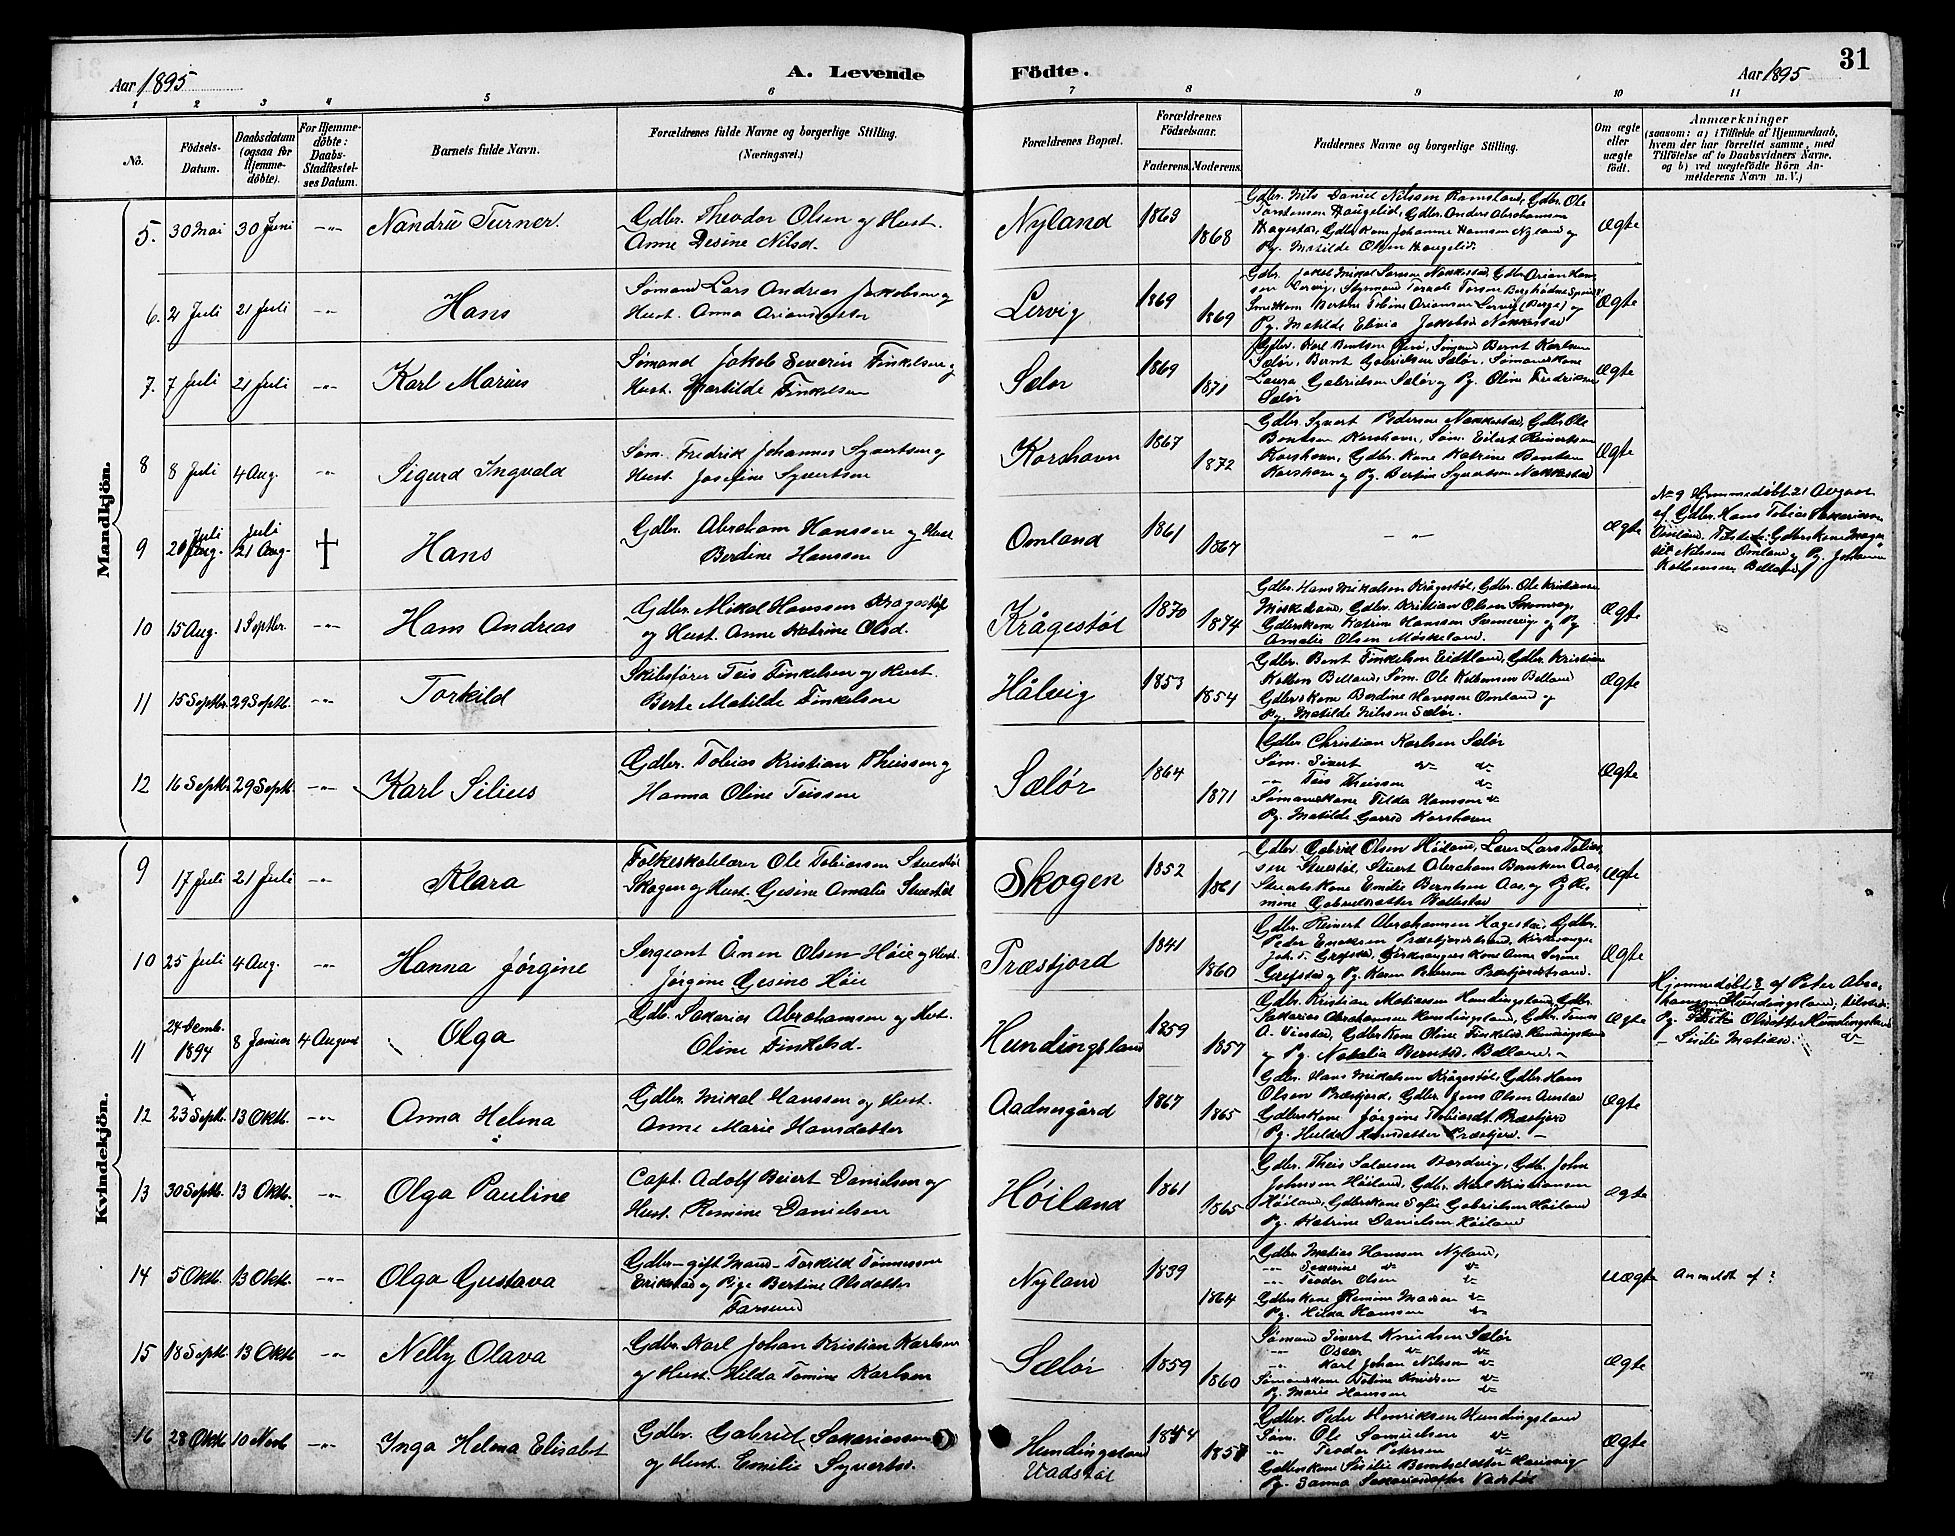 Aar 1895
A. Levende
Födte.
Aar 1895
31
1 2 3 4 5 6 7 8 9 10 11
No.
Födsels-
Datum.
Daabsdatum
(ogsaa for
Hjemme-
döbte).
For Hjemme-
döbte:
Daabs-
Stadfæstel-
ses Datum.
Barnets fulde Navn.
Forældrenes fulde Navne og borgerlige Stilling.
(Næringsvei.)
Forældrenes Bopæl.
Forældrenes
Födselsaar.
Faderens.
Moderens.
Faddernes Navne og borgerlige Stilling.
Om ægte
eller
uægte
födt.
Anmærkninger
(saasom: a) i Tilfælde af Hjemmedaab,
hvem der har forrettet samme, med
Tilföielse af to Daabsvidners Navne,
og b) ved uægtefödte Börn An-
melderens Navn m. V.)
Mandkjön.
5. 30 Mai 30 Juni -"- Nandrü Turner.
Gdbr. Theodor Olsen og Hust.
Anne Desine Nilsd.
Nyland 1863 1868
Gdbr. Nils Daniel Nilssen Ramsland, Gdbr. Ole
Torstensen Haugelid, Gdbr. Anders Abrahamsen
Hagestad, Gdbrkone Johanne Hansen Nyland og
Pg. Matilde Olsen Haugelid.
Ægte
6. 2 Juli 21 Juli -"- Hans
Sømand Lars Andreas Jakobsen og
Hust. Anna Ariansdatter
Lervig 1869 1869
Gdbr. Jakob Mikal Nakkestad, Gdbr. Arian Han
sen Lervig,
Pg. Matilde Elivia Jakobsd Nakkestad
Ægte
7. 7 Juli 21 Juli -"- Karl Marius
Sømand Jakob Severin Finkelsen og
Hust. Matilde Finkelsen
Sælør 1869 1871
Gdbr. Karl Bentsen Sømand Bernt Karlsen
Sælør, Bernt Gabrielsen Sælør, Sømandskone
Laura Gabrielsen Sælør og Pg. Oline Fredriksen
Sælør
Ægte
8 8 Juli 4 Aug. -"- Sigurd Ingvald
Søm. Fredrik Johannes Syvertsen og
Hust. Josefine Syvertsen
Korshavn 1867 1872
Gdbr. Syvert Pedersen Nakkestad, Gdbr. Ole
Bentsen Korshavn, Søm. Eilert Reinertsen
Korshavn, Gdbr. Kone Katrine Bentsen
Korshavn og Pg. Bertine Syvertsen Nakkestad
Ægte
9 20 Juli Juli 21 Aug. † Hans
Gdbr. Abraham Hanssen og Hust
Berdine Hanssen
Omland 1861 1867 -"- Ægte
No 9 Hjemmedøbt 21 August
af Gdbr. Hans Tobias Sakariasen
Omland, Tilstede: Gdbrskone
Nilssen Omland og Pg. Johanne
Kolbensen Belland
10 15 Aug. 1 Septbr. -"- Hans Andreas
Gdbr. Mikal Hanssen Kragestøl
og Hust. Anne Katrine Olsd.
Krågestøl 1870 1874
Gdbr. Hans Mikalsen Krågestøl, Gdbr. Ole Kristiansen
Møskeland, Gdbr. Kristian Olsen
Gdbrskone Katrine Hanssen og Pg
Amalie Olsen Møskeland.
Ægte
11 15 Septbr. 29 Septb. -"- Torkild
Skibsfører Teis Finkelsen og Hust.
Berte Matilde Finkelsen
Hålvig 1853 1854
Gdbr. Bent Finkelsen Eidtland, Gdbr. Kristian
Kolben Belland, Søm. Ole Kolbensen Belland
Gdbrskone Berdine Hanssen Omland og
Pg. Matilde Nilssen Sælør.
Ægte
12 16 Septbr 29 Septb. -"- Karl Silius
Gdbr. Tobias Kristian Theissen og
Hanna Oline Teissen
Sælør 1864 1871
Gdbr Christian Karlsen Sælør
Søm. Sivert
-"- Teis Theissen
Sømandskone Tilda Hanssen
Pg. Matilde Garred Korshavn
Ægte
Kvindekjön.
9 17 Juli 21 Juli -"- Klara
Folkeskolelærer Ole Tobiassen Stuestøl
Skogen og Hust. Gesine Amalie Stuestøl
Skogen 1852 1861
Gdbr. Gabriel Olsen Høiland, Lærer Lars Tobias-
sen Stuestøl, Stuert Abraham Berntsen Aas,
Stuertskone Emilie Berntsen Aas, og Pg Re-
mine Gabrielsdatter
Ægte
10 25 Juli 4 Aug. -"- Hanna Jørgine
Sergeant Ånen Olsen Høie og Hust.
Jørgine Gesine Høie
Præstjord 1841 1860
Gdbr. Reinert Abrahamsen Hagestad, Gdbr.
Peder
Joh. T. Grefstad, Kirkesangers Kone Anne Serine
Grefstad og Pg. Karen
Ægte
11 24 Decmb. 1894 8 Januar 4 August Olga
Gdb. Sakarias Abrahamsen og Hust.
Oline Finkelsd.
Hundingsland 1859 1857
Gdbr. Kristian Matiassen Hundingsland, Gdbr.
Sakarias Abrahamsen Hundingsland, Gdbr.
A. Vinstad, Gdbrskone Oline Finkelsd. Hundingsland
og Pg. Natalia Berntsd. Belland.
Ægte
Hjemmedøbt 8 af Peter Abra
hamsen Hundingsland, tilstede:
Pg. Olsdatter Hundingsland
- Sisilie Matiasd.
12 23 Septb. 13 Oktb. -"- Anna Helma
Gdbr. Mikal Hanssen og Hust.
Anne Marie Hansdatter
Aadnesgård 1867 1865
Gdbr. Hans Mikalsen Krågestøl, Gdbr. Hans
Olsen Præstjord, Gdbr. Jens Olsen
Gdbrskone Jørgine Tobiasdt. Præstjord
Pg. Hulda Hansdatter Præstjord. -
Ægte
13 30 Septb. 13 Oktb. -"- Olga Pauline
Capt. Adolf Beiert Danielsen og
Hust. Remine Danielsen
Høiland 1861 1865
Gdbr. Theis Salvesen Bordvig, Gdb. John
Johnsen Høiland, Gdbr. Karl Kristiansen
Høiland, Gdbrskone Sofie Gabrielsen Høiland
Pg. Katrine Danielsen Høiland
Ægte
14 5 Oktb. 13 Oktb. -"- Olga Gustava
Gdbr - gift Mand - Torkild Tønnessen
Eriksstad og Pige Bertine Olsdatter
Farsund
Nyland 1839 1864
Gdbr. Matias Hanssen Nyland,
-"- Severine
-"- Teodor Olsen
Gdbrskone Remine Madsen
Pg. Hilda Hanssen
uægte Anmeldt af ?
15 18 Septb. 13 Oktb -"- Nelly Olava
Gdbr. Karl Johan Kristian Karlsen
og Hust. Hilda Tomine Karlsen
Sælør 1859 1860
Sømand Sivert Knudsen Sælør
-"- Oscar
-"- Karl Johan Nilssen
Sømandskone Tobine Knudsen
Pg. Marie Hanssen
Ægte
16 28 Oktb. 10 Novb -"- Inga Helma Elisabet
Gdbr. Gabriel Sakariassen
og Hust. Emilie Syvertsd.
Hundingsland
Vadstøl
1854 1857
Gdbr. Peder Henriksen Hundingsland
Søm. Ole Samuelsen
-"- Teodor Petersen
Gdbrskone Sisilie Berntsdatter
Pg. Sanna Sakariasdatter Vadstøl
Ægte